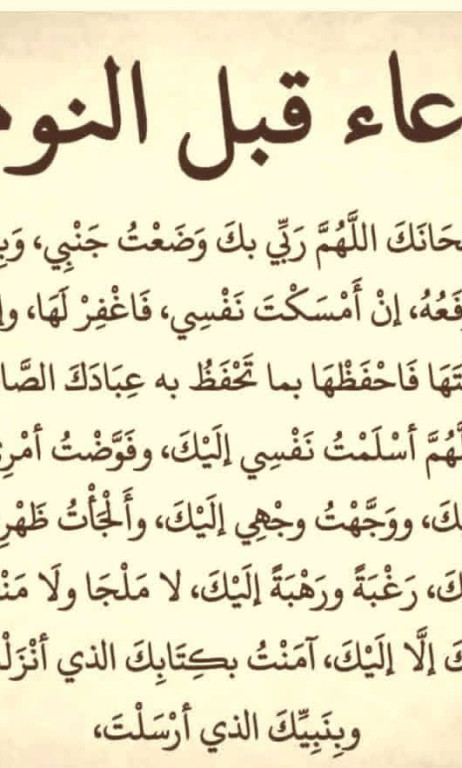 عاء قبل النوم
حَانَكَ اللَّهُمَّ رَبِّي بكَ وَضَعْتُ جَنْبِي، وَبِ
فَعُهُ، إنْ أَمْسَكْتَ نَفْسِي، فَاغْفِرْ لَهَا، وإ
تَهَا فَاحْفَظْهَا بما تَحْفَظُ به عِبَادَكَ الصَّا
لَّهُمَّ أسْلَمْتُ نَفْسِي إلَيْكَ، وفَوَّضْتُ أمْرِي
كَ، ووَجَّهْتُ وجْهِي إلَيْكَ، وأَلْجَأْتُ ظَهْرِ
كَ، رَغْبَةً ورَهْبَةً إلَيْكَ، لا مَلْجَا ولَا مَنْ
كَ إلَّا إلَيْكَ، آمَنْتُ بكِتَابِكَ الذي أنْزَلْ
وبِنَبِيِّكَ الذي أرْسَلْتَ،